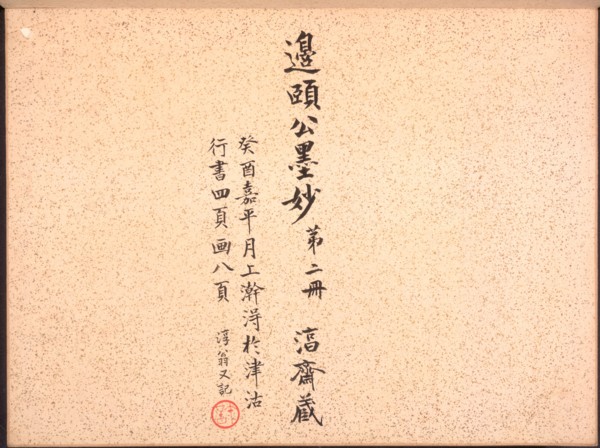 邊頤公墨妙 第二冊 㵬齋藏
癸酉嘉平月上澣淂於津沽
行書四頁画八頁 淳翁又記